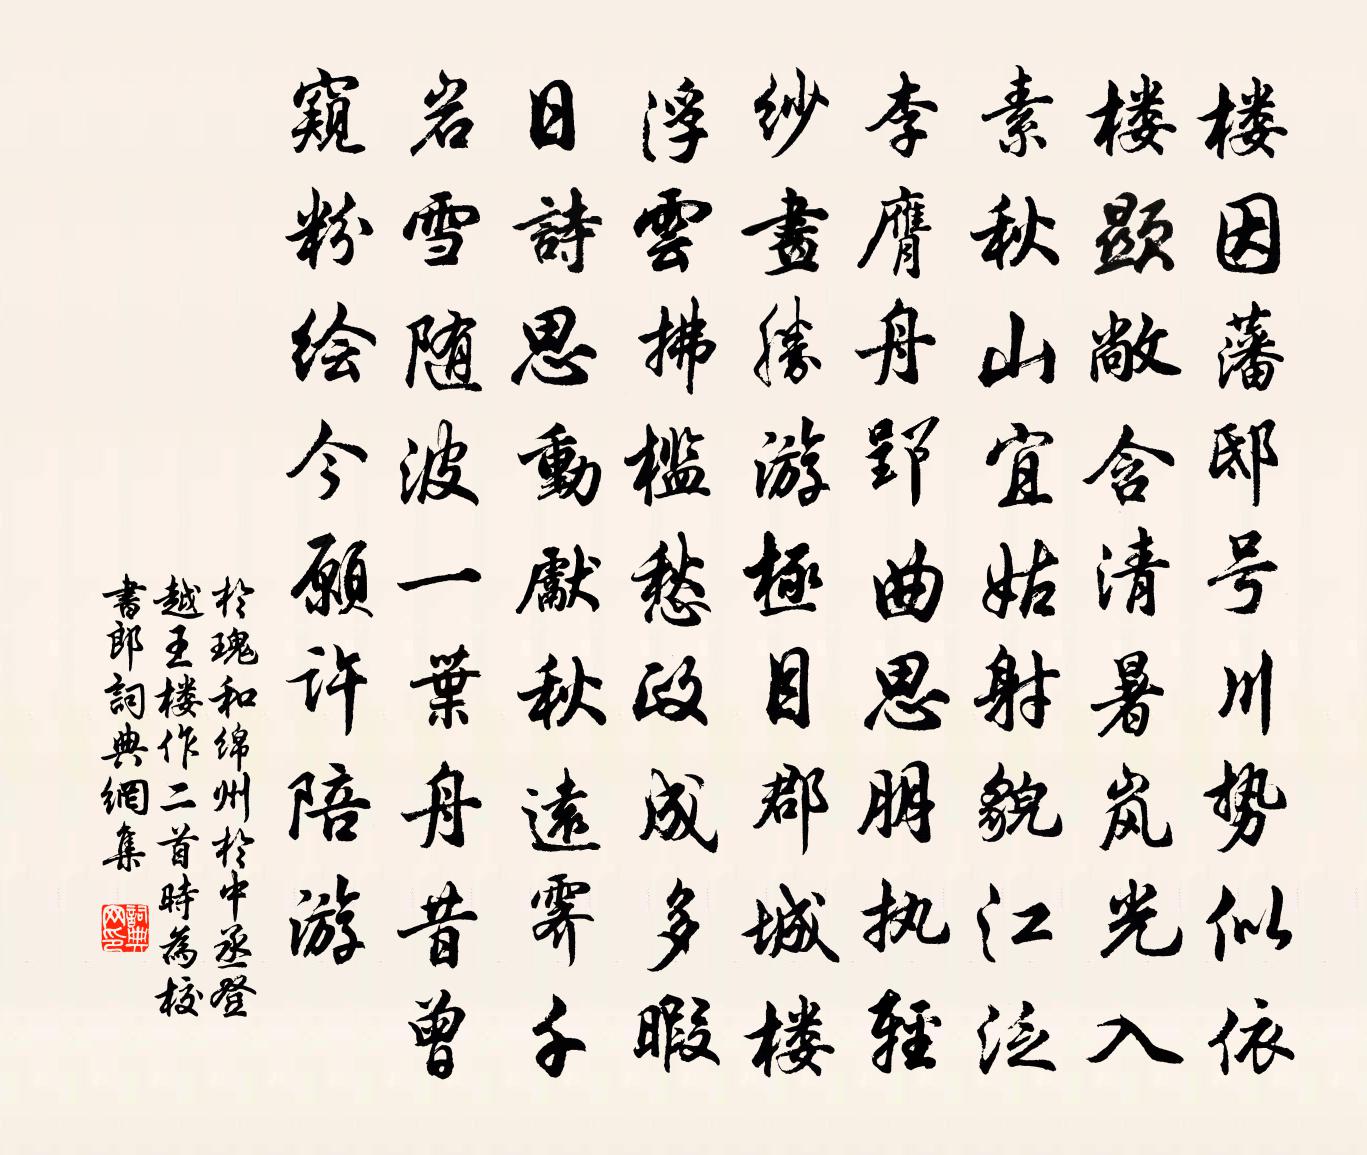 楼因藩邸号川势似依
楼顯敞含清暑岚光入
素秋山宜姑射貌江泛
李膺舟郢曲思朋执輕
纱畫勝游極目郡城楼
浮雲拂槛愁政成多暇
日詩思動獻秋遠霽千
岩雪随波一葉舟昔曾
窺粉绘今願许陪游
於瑰和绵州於中丞登
越王楼作二首時為校
書郎詞典網集
詞典
网印